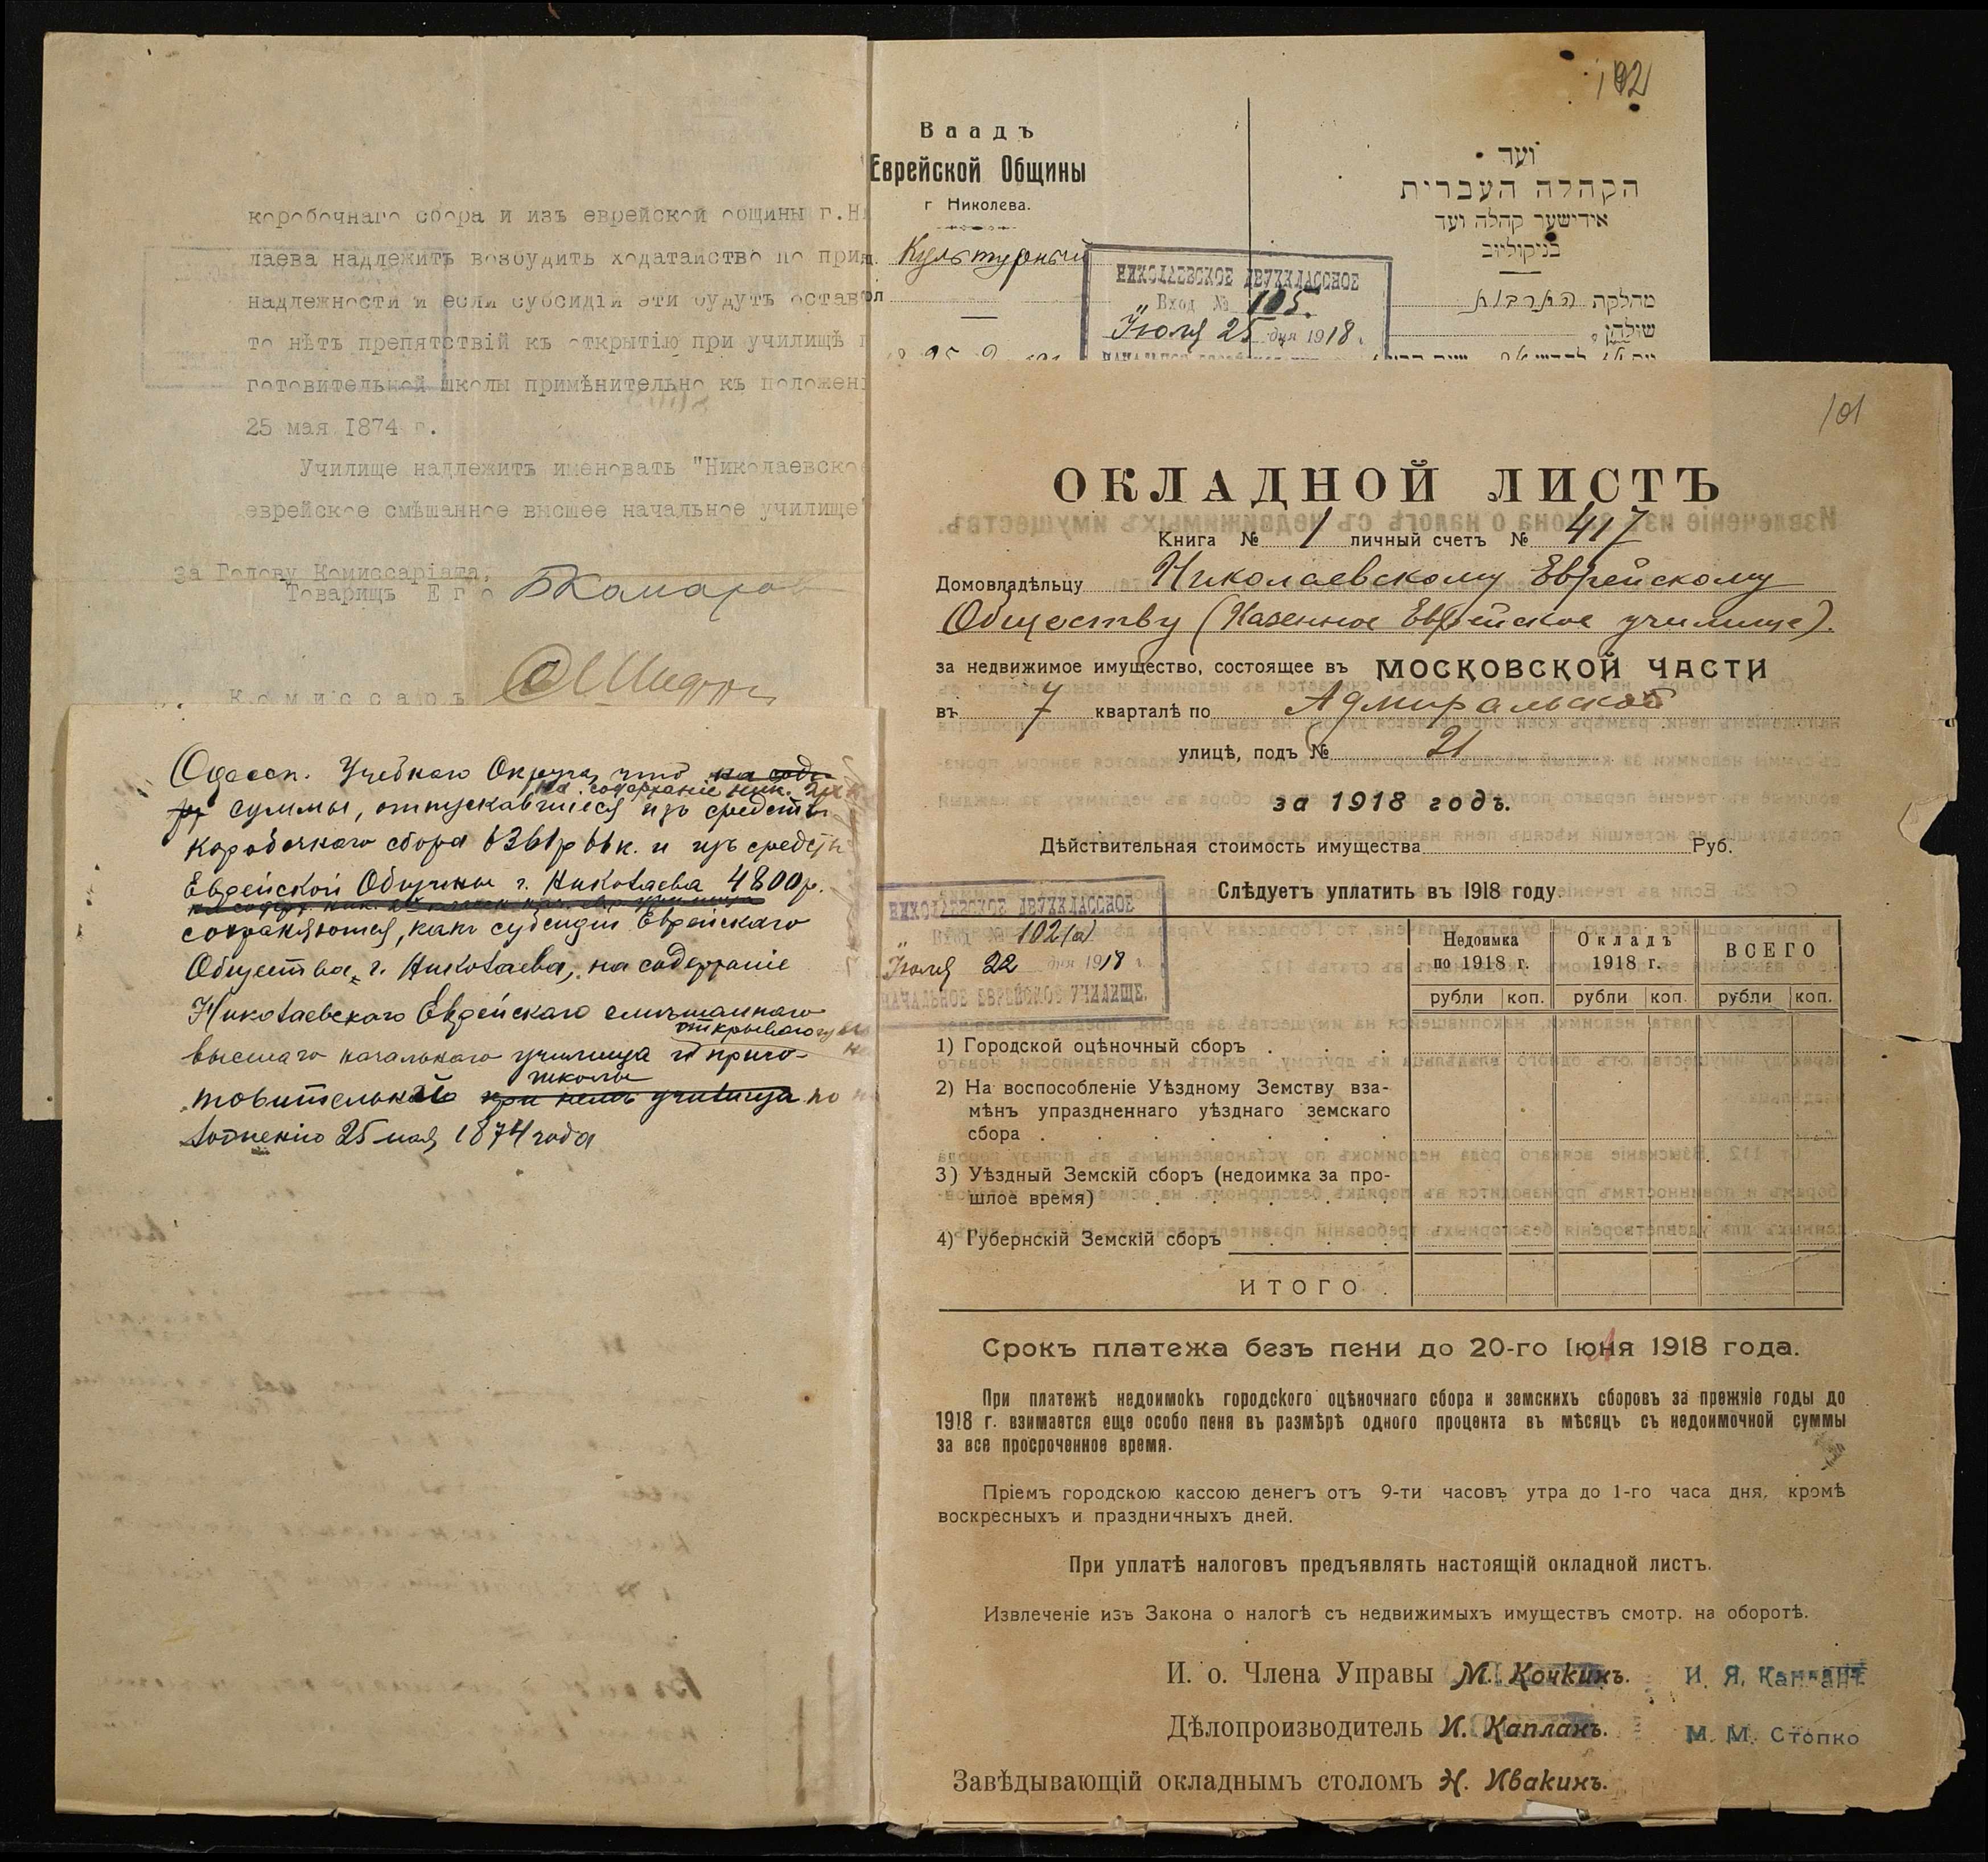 коробочнаго сбора и изъ еврейской общины г.Н
лаева надлежитъ возбудить ходатайство по прин
надлежности и если субсидіи эти будутъ остав
то нѣтъ препятствій къ открытію при училищѣ п
готовительной школы примѣнительно къ положен
25 мая 1874 г.
Училище надлежитъ именовать "Николаевско
еврейское смѣшанное высшее начальное училище"
за Голову Комиссаріата,
Товарищъ Его
Комиссаръ
Одесск. Учебнаго Округа, что на сод
на содержаніе ник.
суммы, отпускавшіеся изъ средствъ
коробочнаго сбора 6361р 61к. и изъ средствъ
Еврейской Общины г. Николаева 4800р.
сохраняются, какъ субсидіи Еврейскаго
Общества г. Николаева, на содержаніе
Николаевскаго Еврейскаго смѣшаннаго
высшаго начальнаго училища и приго-
школы
товительной при немъ училища по
ложенію 25 мая 1874 года
102
Ваадъ
Еврейской Общины
г Николаева.
Культурный
ועד
הקהלה העברית
אידישער קהלה ועד
בניקולייב
מחלקת התרבות
שולחן
НИКОЛАЕВСКОЕ ДВУХКЛАССНОЕ
Вход № 105.
Іюля 25 дня 1918 г.
101
ОКЛАДНОЙ ЛИСТЪ
Книга № 1 личный счетъ № 417
Домовладѣльцу Николаевскому Еврейскому
Обществу (Казенное Еврейское училище).
за недвижимое имущество, состоящее въ МОСКОВСКОЙ ЧАСТИ
въ 7 кварталѣ по Адмиральской
улицѣ, подъ № 21
за 1918 годъ.
Дѣйствительная стоимость имущества Руб.
Слѣдуетъ уплатить въ 1918 году.
НИКОЛАЕВСКОЕ ДВУХКЛАССНОЕ
Вход № 102(а)
Іюля 22 дня 1918 г.
НАЧАЛЬНОЕ ЕВРЕЙСКОЕ УЧИЛИЩЕ.
Недоимка по 1918 г. Окладъ 1918 г. ВСЕГО
рубли коп. рубли коп. рубли коп.
1) Городской оцѣночный сборъ
2) На воспособленіе Уѣздному Земству вза-
мѣнъ упраздненнаго уѣзднаго земскаго
сбора
3) Уѣздный Земскій сборъ (недоимка за про-
шлое время)
4) Губернскій Земскій сборъ
ИТОГО
Срокъ платежа безъ пени до 20-го Іюня 1918 года.
При платежѣ недоимокъ городского оцѣночнаго сбора и земскихъ сборовъ за прежніе годы до
1918 г. взимается еще особо пеня въ размѣрѣ одного процента въ мѣсяцъ съ недоимочной суммы
за все просроченное время.
Пріемъ городскою кассою денегъ отъ 9-ти часовъ утра до 1-го часа дня, кромѣ
воскресныхъ и праздничныхъ дней.
При уплатѣ налоговъ предъявлять настоящій окладной листъ.
Извлеченіе изъ Закона о налогѣ съ недвижимыхъ имуществъ смотр. на оборотѣ.
И. о. Члена Управы М. Кочкинъ.
Дѣлопроизводитель И. Капланъ. М. М. Стопко
Завѣдывающій окладнымъ столомъ Н. Ивакинъ.